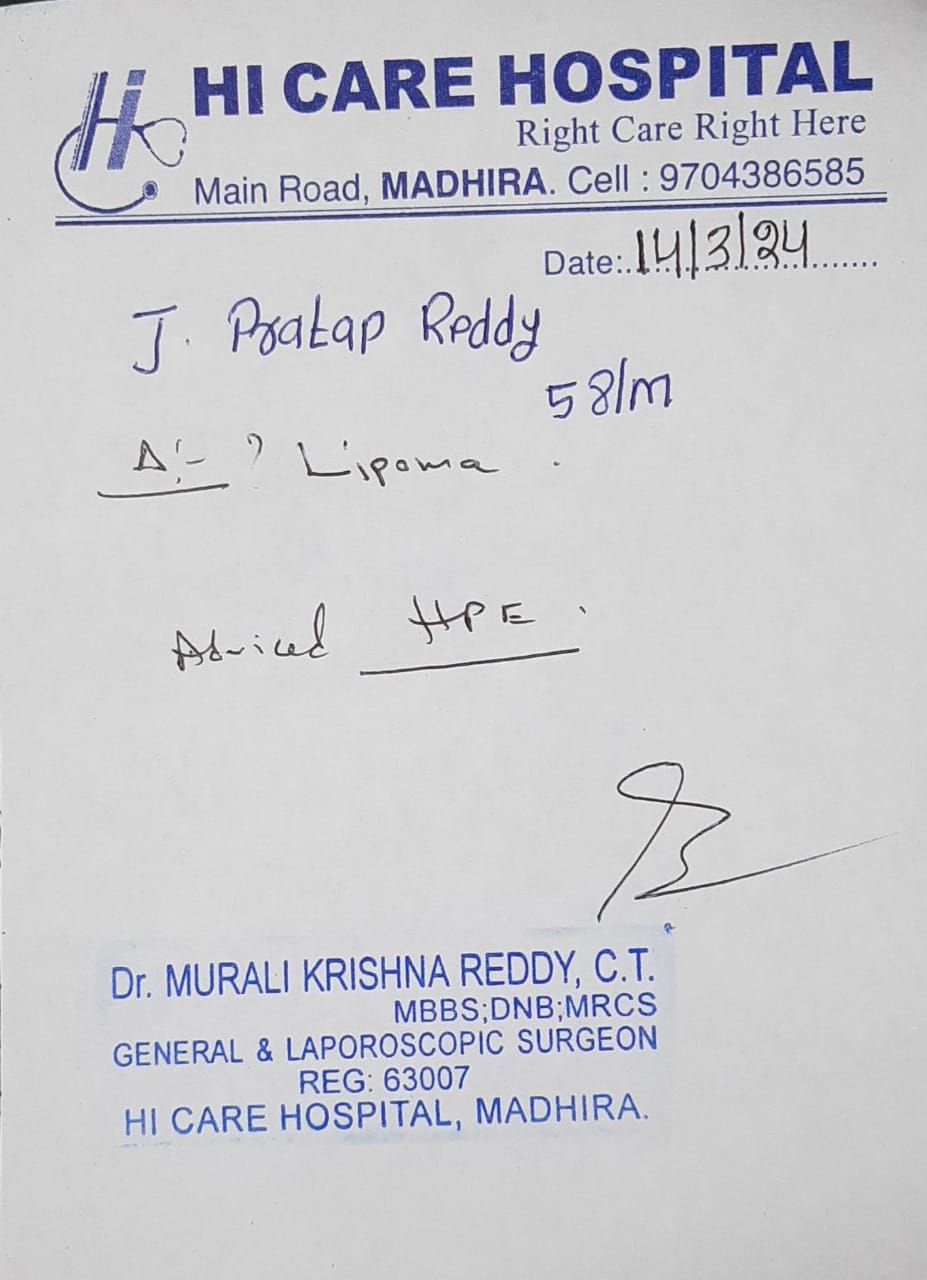 Hi HI CARE HOSPITAL
Right Care Right Here
Main Road, MADHIRA. Cell : 9704386585
Date:..14/3/24.......
J. Pratap Reddy
58/M
Δ:- ? Lipoma .
Adviced HPE .
Dr. MURALI KRISHNA REDDY, C.T.
MBBS;DNB;MRCS
GENERAL & LAPOROSCOPIC SURGEON
REG: 63007
HI CARE HOSPITAL, MADHIRA.